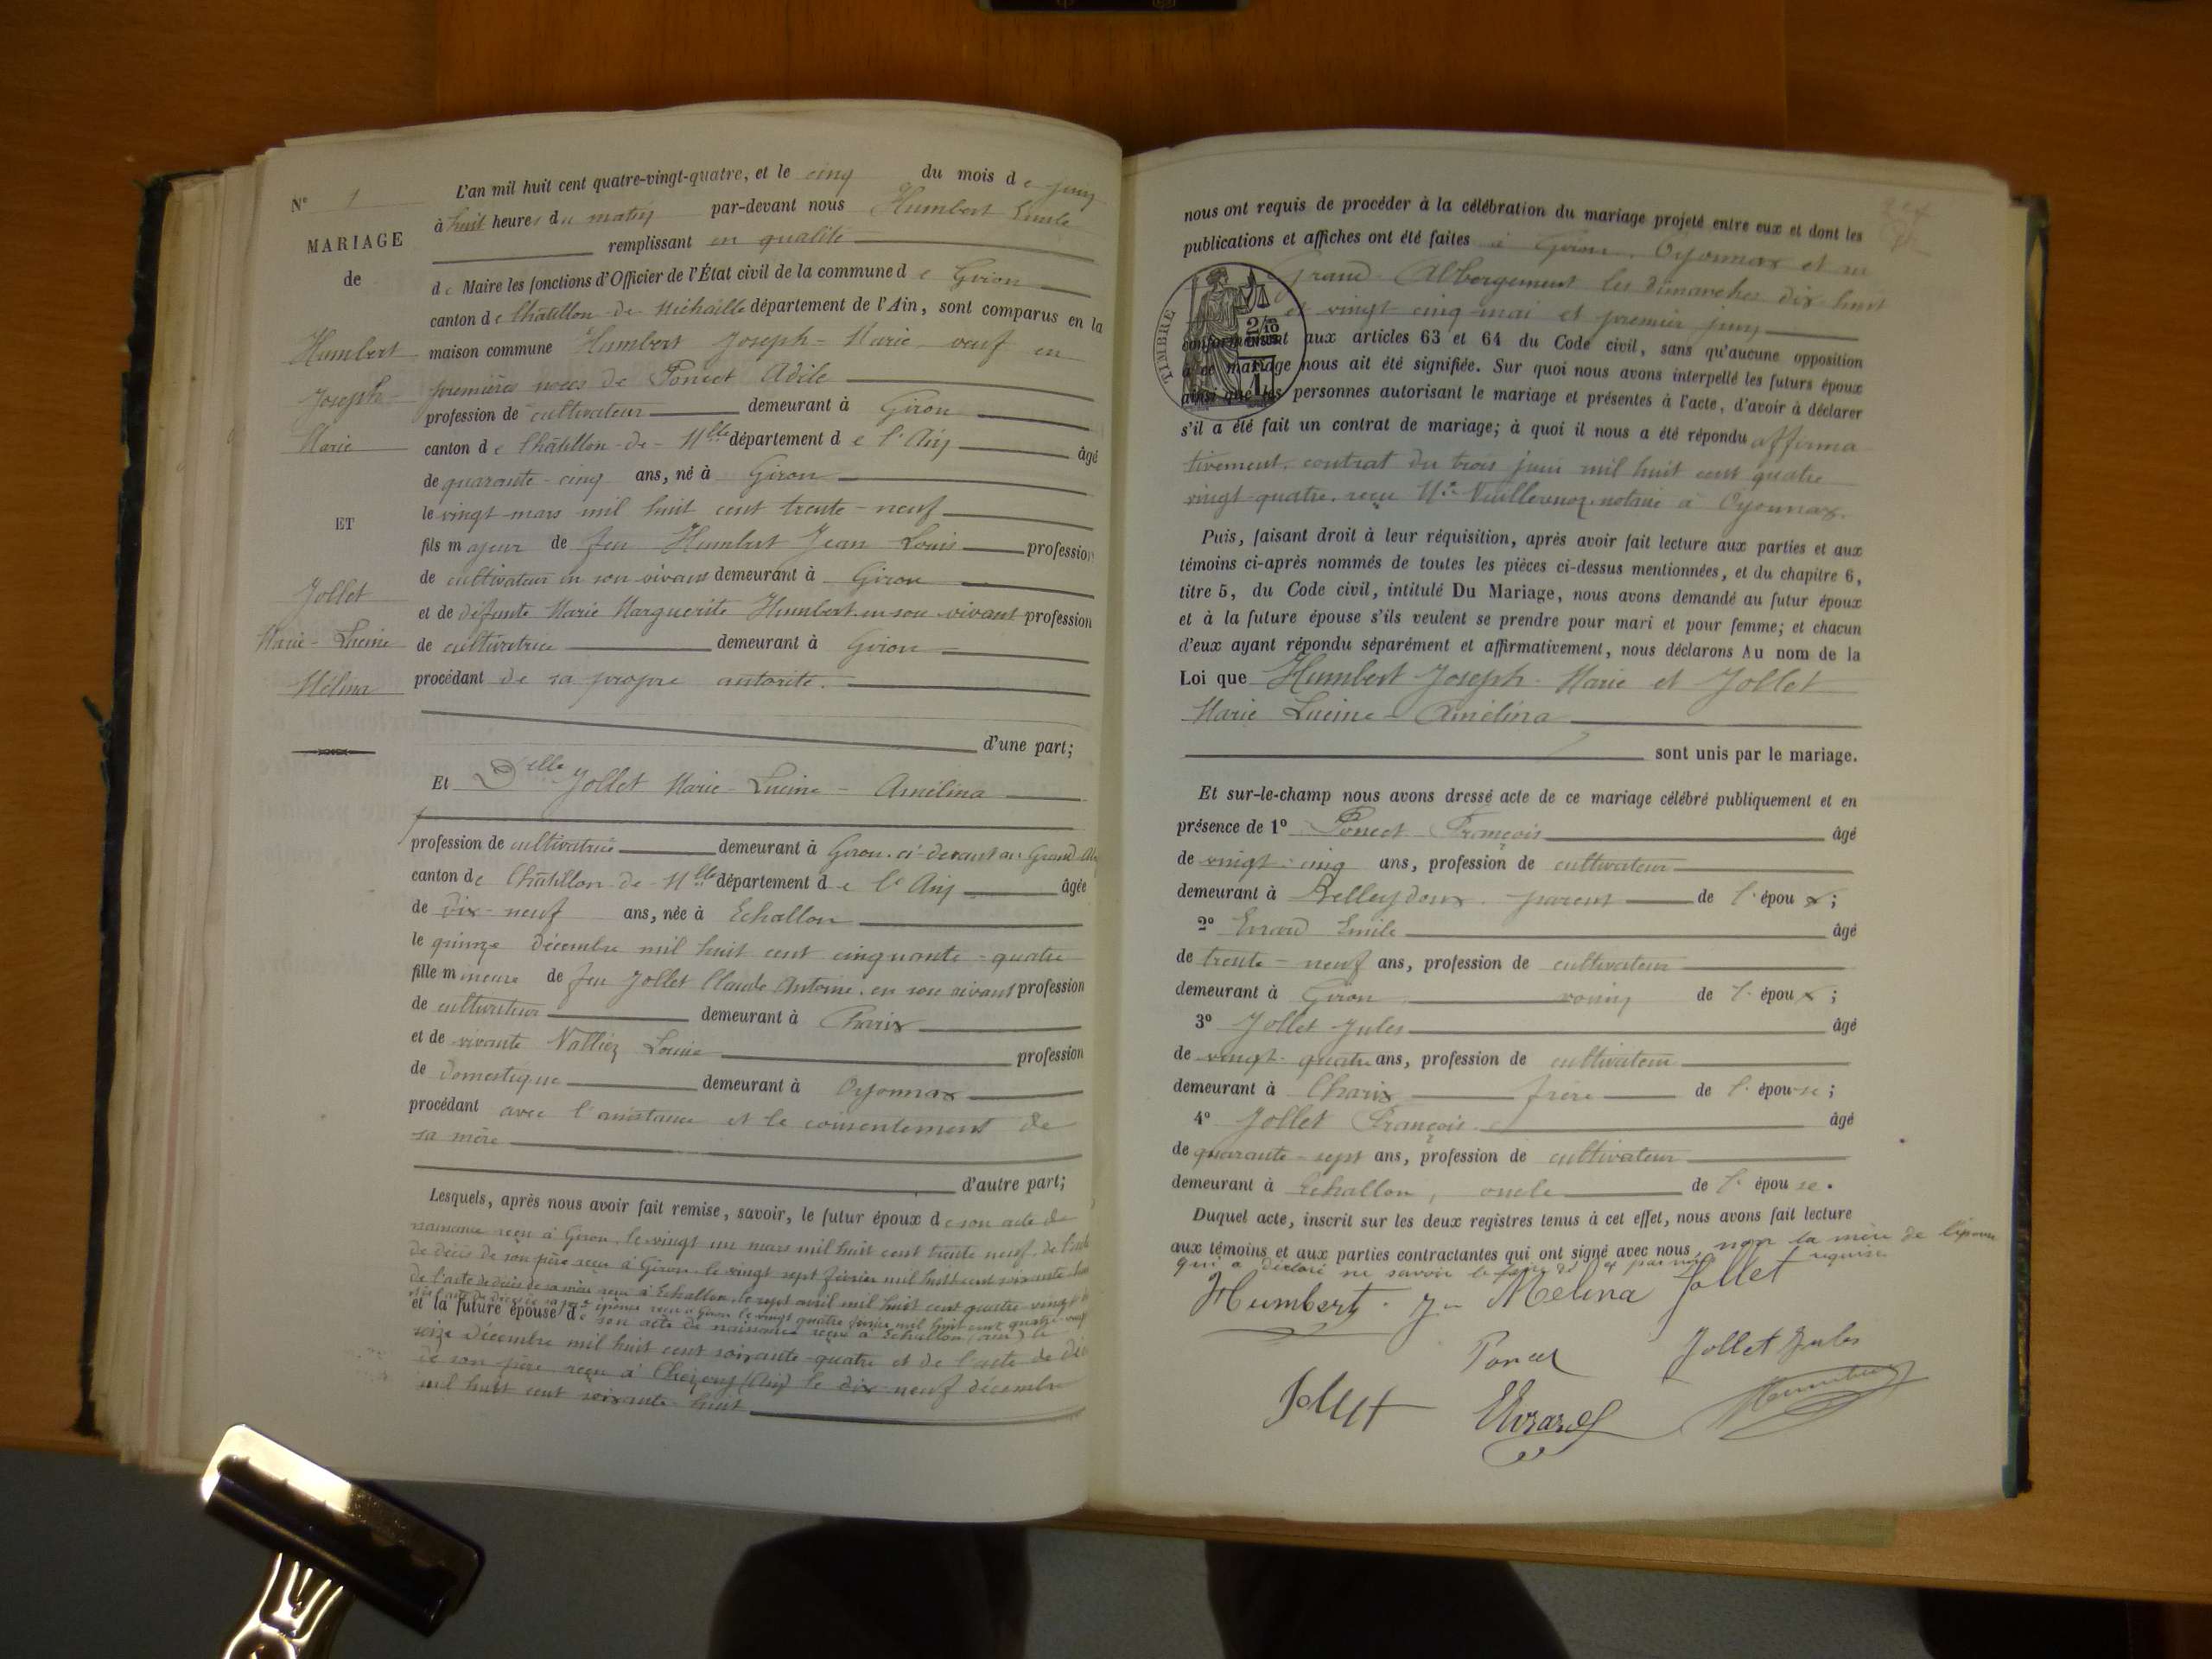 N° 1
MARIAGE
de
Humbert
Joseph-
Marie
ET
Jollet
Marie-Lucine
Mélina
L'an mil huit cent quatre-vingt-quatre, et le cinq du mois de juin
à huit heures du matin par-devant nous Humbert Emile
remplissant en qualité
de Maire les fonctions d'Officier de l'État civil de la commune de Giron
canton de Châtillon-de-Michaille département de l'Ain, sont comparus en la
maison commune Humbert Joseph-Marie veuf en
premières noces de Poncet Adile
profession de cultivateur demeurant à Giron
canton de Châtillon-de-Mlle département de l'Ain âgé
de quarante-cinq ans, né à Giron
le vingt mars mil huit cent trente-neuf
fils majeur de feu Humbert Jean Louis profession
de cultivateur en son vivant demeurant à Giron
et de défunte Marie Marguerite Humbert en son vivant profession
de cultivatrice demeurant à Giron
procédant de sa propre autorité.
d'une part;
Et Delle Jollet Marie-Lucine-Amélina
profession de cultivatrice demeurant à Giron. ci-devant au Grand
canton de Châtillon-de-Mlle département de l'Ain âgée
de dix-neuf ans, née à Echallon
le quinze décembre mil huit cent cinquante-quatre
fille mineure de feu Jollet Claude Antoine. en son vivant profession
de cultivateur demeurant à Charix
et de vivante Nalliez Louise profession
de domestique demeurant à Oyonnax
procédant avec l'assistance et le consentement de
sa mère
d'autre part;
Lesquels, après nous avoir fait remise, savoir, le futur époux de son acte de
naissance reçu à Giron, le vingt un mars mil huit cent trente neuf. de l'acte
de décès de son père reçu à Giron le vingt sept février mil huit cent soixante
de l'acte de décès de sa mère reçu à Echallon, le sept avril mil huit cent quatre-vingt
épouse reçu à Giron le vingt quatre février mil huit cent quatre-vingt
et la future épouse de son acte de naissance reçu à Echallon (Ain) le
seize décembre mil huit cent soixante-quatre et de l'acte de
de son père reçu à Chézery (Ain) le dix-neuf décembre
mil huit cent soixante-huit
nous ont requis de procéder à la célébration du mariage projeté entre eux et dont les
publications et affiches ont été faites à Giron, Oyonnax et au
Grand-Abbergement les dimanches dix-huit
et vingt cinq mai et premier juin
TIMBRE
conformément aux articles 63 et 64 du Code civil, sans qu'aucune opposition
à ce mariage nous ait été signifiée. Sur quoi nous avons interpellé les futurs époux
ainsi que les personnes autorisant le mariage et présentes à l'acte, d'avoir à déclarer
s'il a été fait un contrat de mariage; à quoi il nous a été répondu affirma
tivement, contrat du trois juin mil huit cent quatre
vingt quatre. reçu Me notaire à Oyonnax.
Puis, faisant droit à leur réquisition, après avoir fait lecture aux parties et aux
témoins ci-après nommés de toutes les pièces ci-dessus mentionnées, et du chapitre 6,
titre 5, du Code civil, intitulé Du Mariage, nous avons demandé au futur époux
et à la future épouse s'ils veulent se prendre pour mari et pour femme; et chacun
d'eux ayant répondu séparément et affirmativement, nous déclarons Au nom de la
Loi que Humbert Joseph-Marie et Jollet
Marie Lucine-Amélina
sont unis par le mariage.
Et sur-le-champ nous avons dressé acte de ce mariage célébré publiquement et en
présence de 1° Poncet François âgé
de vingt-cinq ans, profession de cultivateur
demeurant à Belleydoux. parent de l'époux;
2° Evrard Emile âgé
de trente-neuf ans, profession de cultivateur
demeurant à Giron voisin de l'époux;
3° Jollet Jules âgé
de vingt-quatre ans, profession de cultivateur
demeurant à Charix frère de l'épouse;
4° Jollet François. âgé
de quarante-sept ans, profession de cultivateur
demeurant à Echallon, oncle de l'épouse.
Duquel acte, inscrit sur les deux registres tenus à cet effet, nous avons fait lecture
aux témoins et aux parties contractantes qui ont signé avec nous, non la mère de l'épouse
qui a déclaré ne savoir le faire de ce par nous requise
Humbert. J M Melina Jollet
Poncet Jollet Jules
Jollet Evrard Humbert